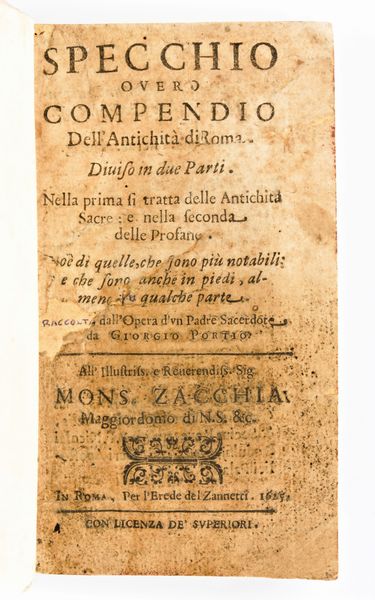 SPECCHIO
OVERO
COMPENDIO
Dell'Antichità di Roma.
Diuiſo in due Parti.
Nella prima ſi tratta delle Antichità
Sacre: e nella ſeconda
delle Profane.
oè di quelle, che ſono più notabili;
e che ſono anche in piedi, al-
meno qualche parte.
RACCOLTA dall'Opera d'vn Padre Sacerdote
da GIORGIO PORTIO.
All' Illuſtriſs. e Reuerendiſs. Sig.
MONS. ZACCHIA
Maggiordomo di N.S. &c.
IN ROMA, Per l'Erede del Zannetti.
CON LICENZA DE' SVPERIORI.